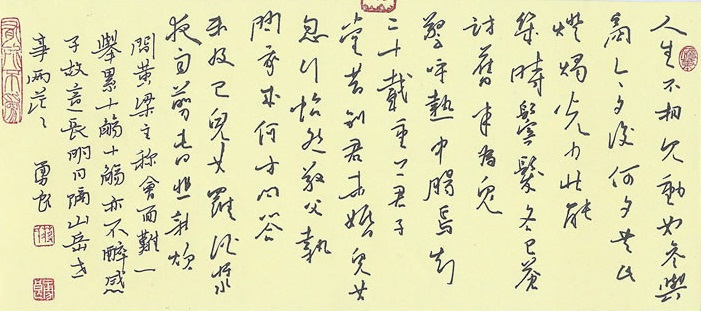 人生不相见動如参與
商今夕復何夕共此
燈燭光少壮能
幾時鬢髮各已蒼
訪舊半為鬼
驚呼熱中腸焉知
二十載重上君子
堂昔别君未婚兒女
忽行怡然敬父執
問我来何方问答
未及已兒女羅酒漿
夜雨剪春韭新炊
間黄粱主称會面難一
舉累十觴十觴亦不醉感
子故意長明日隔山岳世
事两茫々 勇